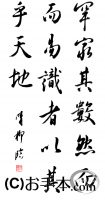 罕窮其數然而
而易識者以其
乎天地
(C)お手本.com